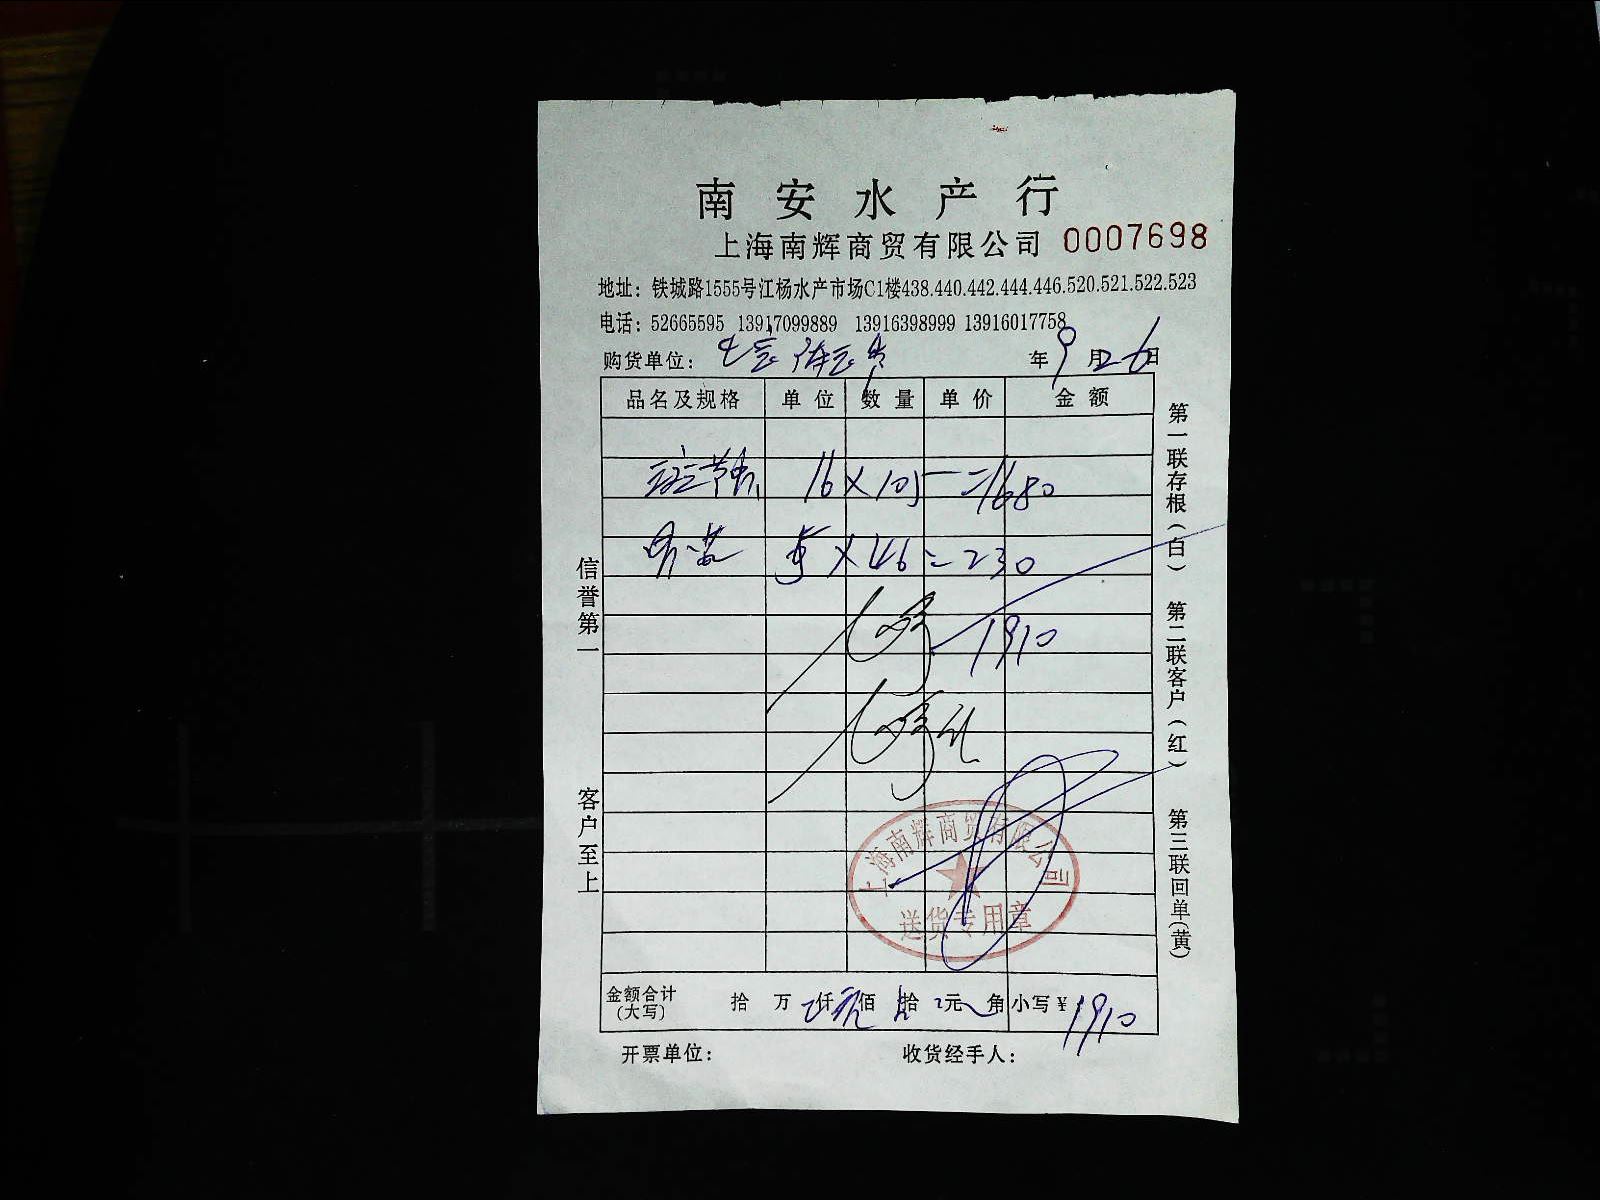 南安水产行
上海南辉商贸有限公司 0007698
地址：铁城路1555号江杨水产市场C1楼438.440.442.444.446.520.521.522.523
电话：52665595 13917099889 13916398999 13916017758
购货单位： 年9月26日
品名及规格 单位 数量 单价 金额
斑节 16×105=1680
5×46=230
1910
上海南辉商贸有限公司
送货专用章
金额合计(大写) 拾 万 仟 佰 拾 元 角 小写¥1910
开票单位： 收货经手人：
信誉第一
客户至上
第一联存根(白)
第二联客户(红)
第三联回单(黄)